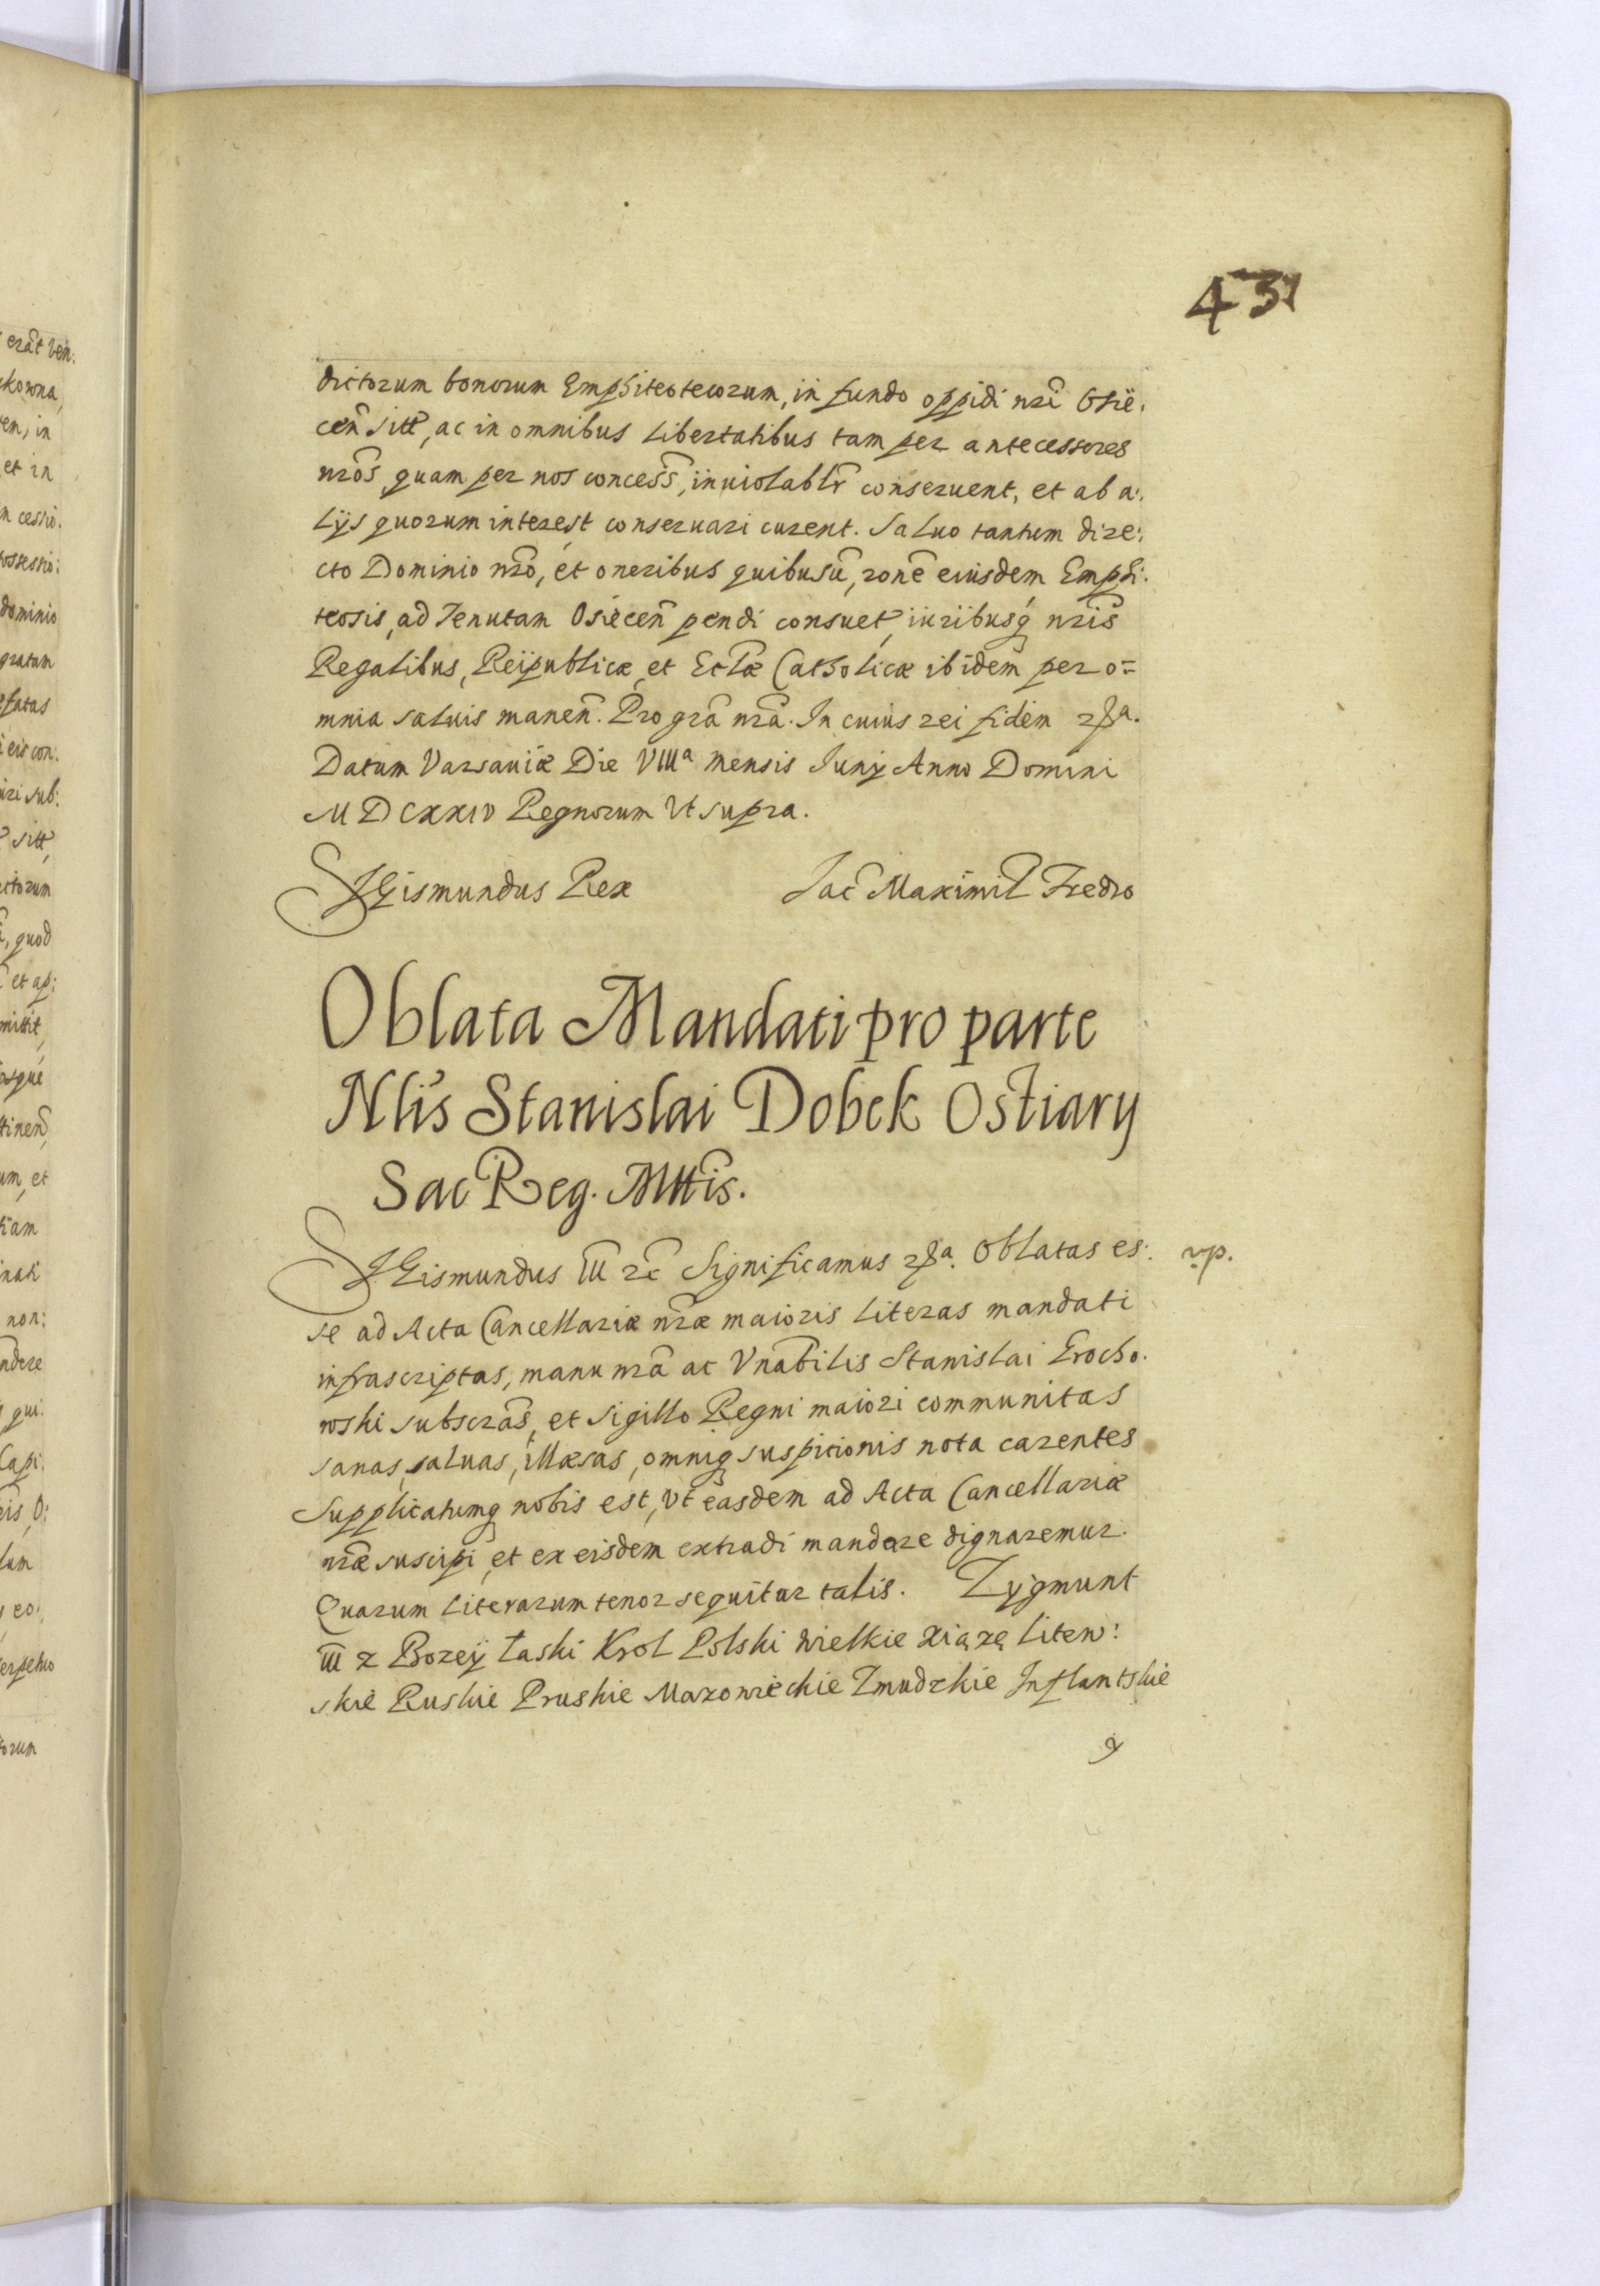 431
dictorum bonorum Emphiteoticorum, in fundo oppidi nri Osie:
cen sitt, ac in omnibus libertatibus tam per antecessores
nros, quam per nos concess, inuiolablr conseruent, et ab a:
lijs quorum interest conseruari curent. Saluo tantum dire:
cto Dominio nro, et oneribus quibusu, rone eiusdem Emphi:
teosis, ad Tenutam Osiecen pendi consuet, iuribusq nris
Regalibus, Reipublicæ, et Eclæ Catholicæ ibidem per o=
mnia saluis manen. Pro gra nra. In cuius rei fidem
Datum Varsauiæ Die VIIIa Mensis Junij Anno Domini
MDCXXIV Regnorum Vt supra.
SIGismundus Rex Jac Maximil Fredro
Oblata Mandati pro parte
Nlis Stanislai Dobek Ostiarij
Sac Reg. Mttis.
SIGismundus III rc Significamus Oblatas es:
se ad Acta Cancellariæ nræ maioris literas mandati
infrascriptas, manu nra ac Vnabilis Stanislai Erocho:
wski subscras, et Sigillo Regni maiori communitas
sanas, saluas, illæsas, omniq suspitionis nota carentes
Supplicatumq nobis est, vt easdem ad Acta Cancellariæ
nræ suscipi, et ex eisdem extradi mandare dignaremur.
Quarum literarum tenor sequitur talis. Zygmunt
III z Bozey Łaski Krol Polski Wielkie Xiązę Litew:
skie Ruskie Pruskie Mazowieckie Zmudzkie Inflantskie
y